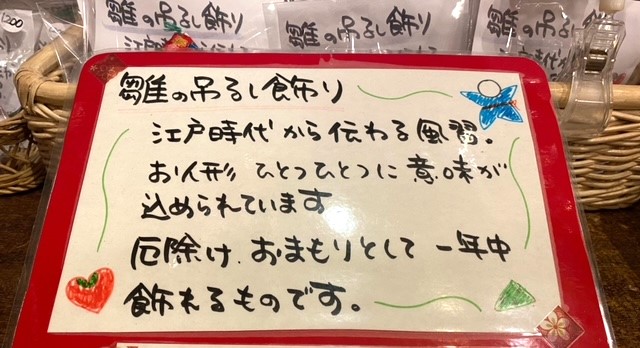 1200
雛の吊るし飾り
雛の吊るし飾り
雛の吊るし飾り
雛の吊るし飾り
江戸時代から伝わる風習。
お人形 ひとつひとつに意味が
込められています
厄除け、おまもりとして 一年中
飾れるものです。